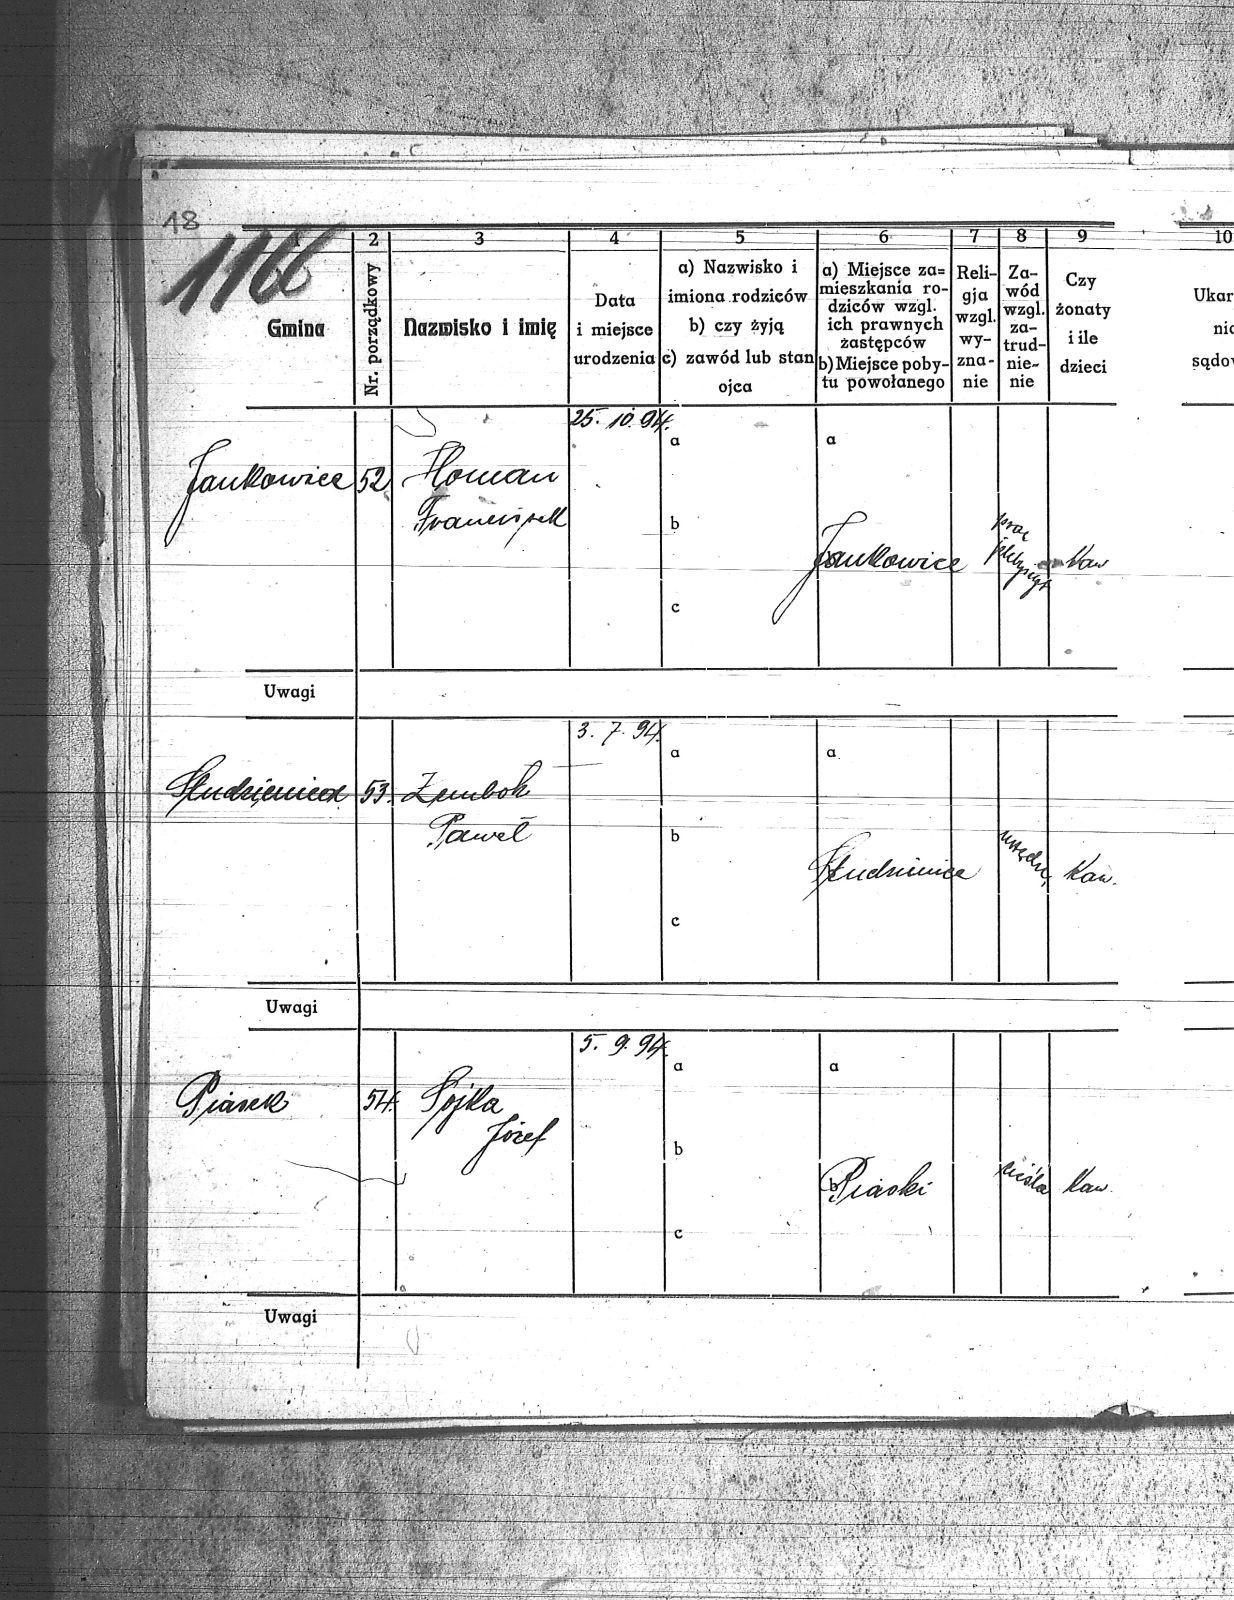 18
1166
1 2 3 4 5 6 7 8 9 10
Gmina
Nr. porządkowy
Nazwisko i imię
Data
i miejsce
urodzenia
a) Nazwisko i
imiona rodziców
b) czy żyją
c) zawód lub stan
ojca
a) Miejsce za=
mieszkania ro-
dziców wzgl.
ich prawnych
zastępców
b) Miejsce poby-
tu powołanego
Reli-
gja
wzgl.
wy-
zna-
nie
Za-
wód
wzgl.
za-
trud-
nie-
nie
Czy
żonaty
i ile
dzieci
Ukar
nie
sądow
25. 10. 94.
a a
Jankowice 52 Homan
Franciszek
b
Jankowice
Kaw
c
Uwagi
3. 7. 94.
a a
Studzienice 53. Zembok
Paweł
b
Studzienice
Kaw.
c
Uwagi
5. 9. 94.
a a
Piasek 54. Sojka
Józef
b
b Piaski cieśla Kaw.
c
Uwagi